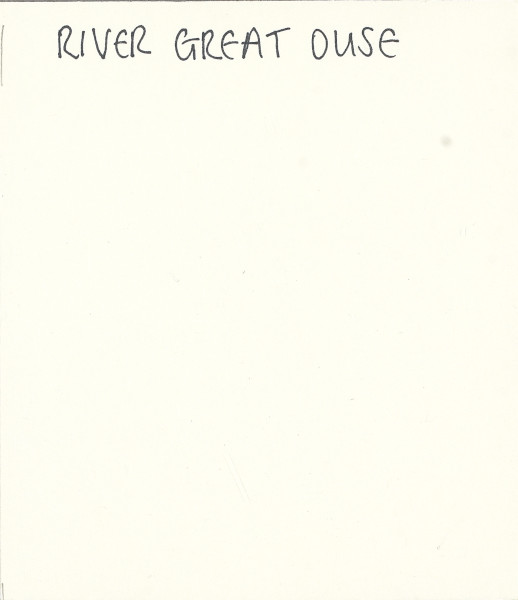 RIVER GREAT OUSE